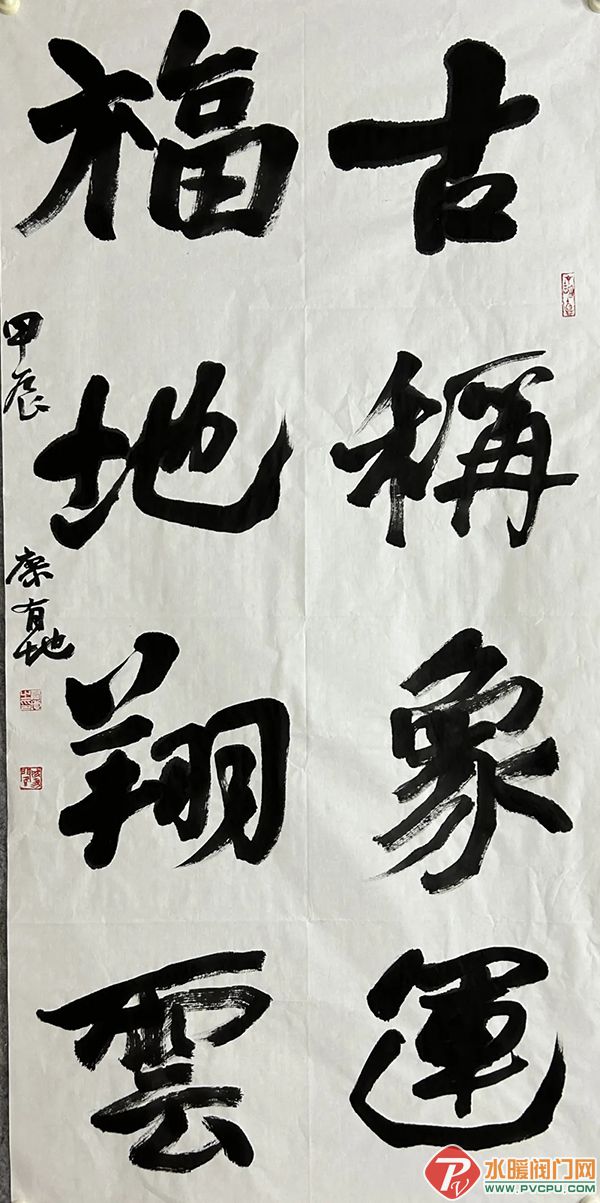 古稱象運
福地翔雲
甲辰
有地
水暖阀门网
WWW.PVCPU.COM